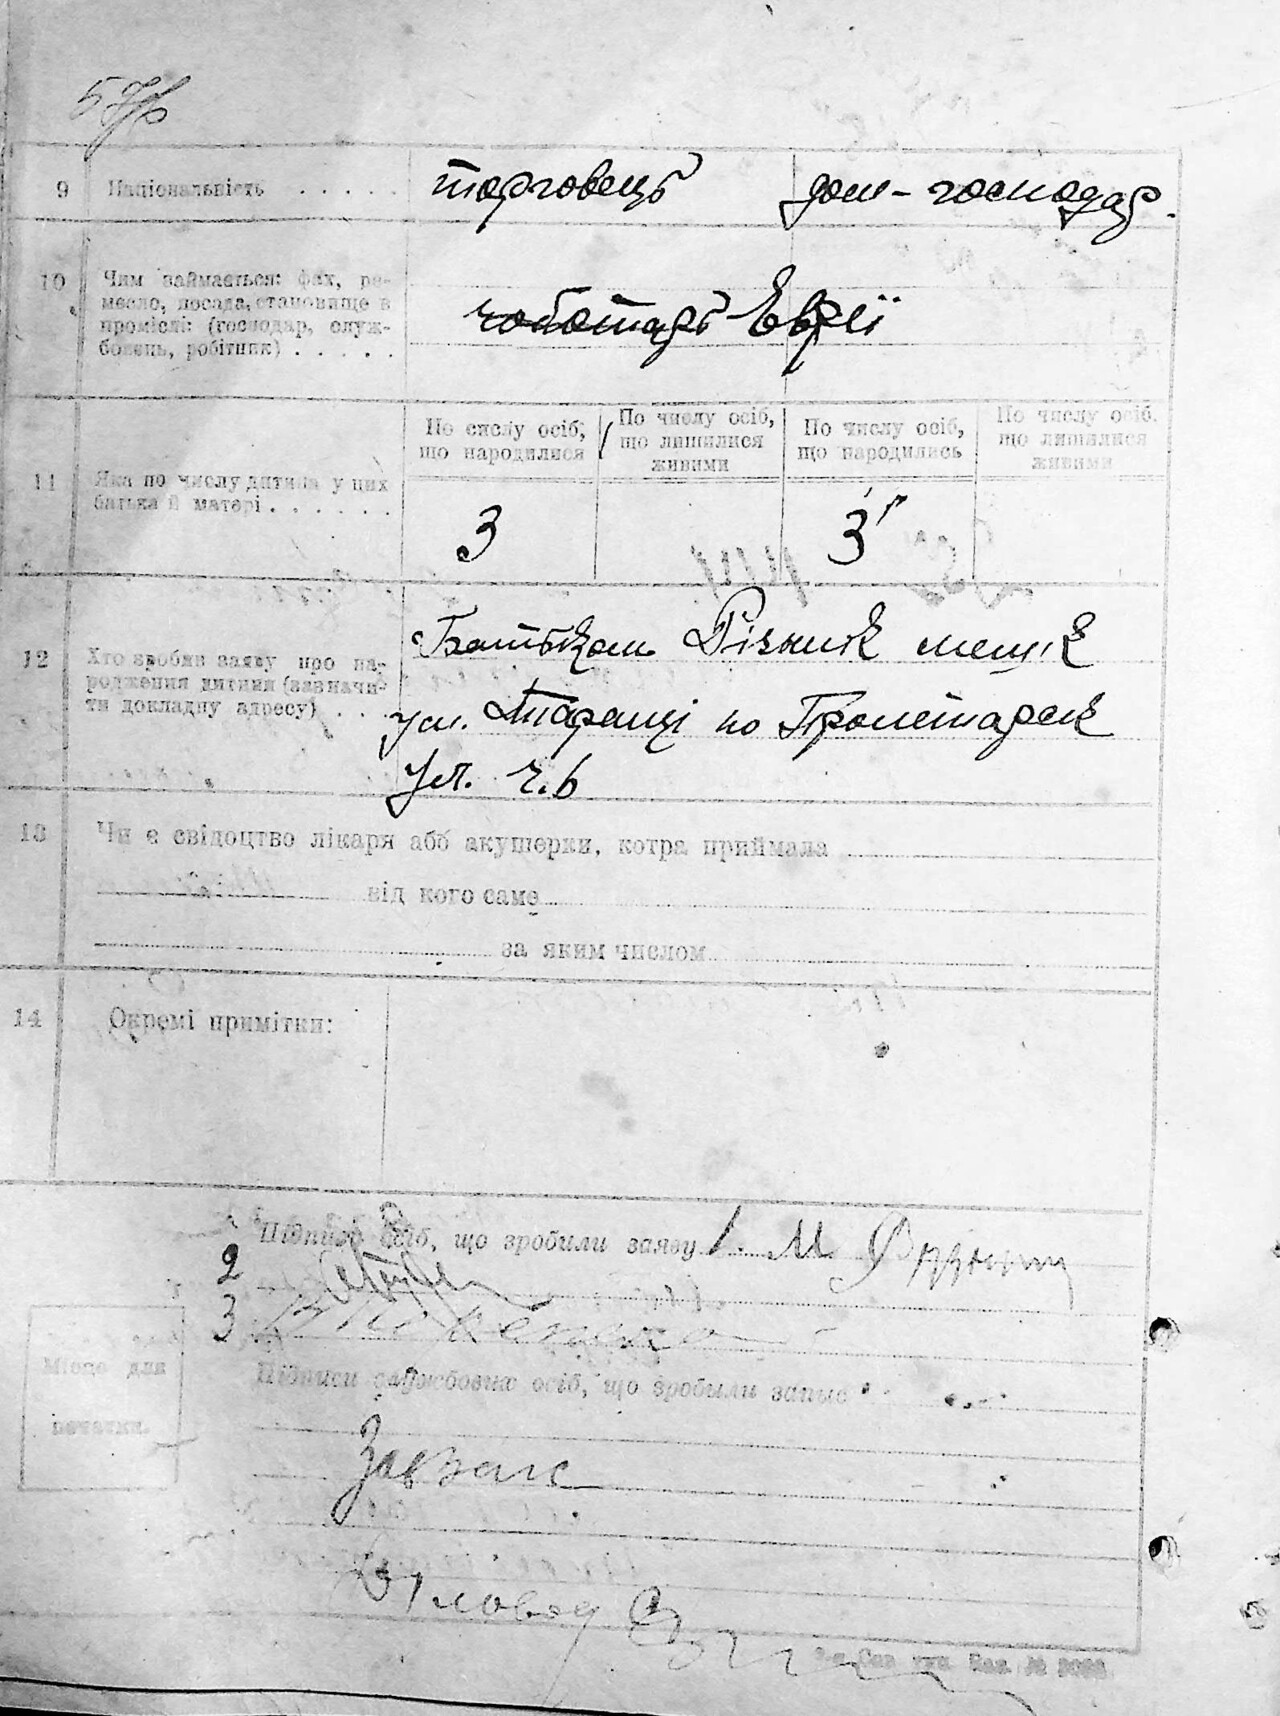 57
9 Національність . . . . . торговець дом-господар.
10 Чим займається: фах, ре-
месло, посада, становище в
промислі: (господар, служ-
бовець, робітник) . . . . .
чоботарь Еврєї
По числу осіб, що народилися
По числу осіб, що лишилися живими
По числу осіб, що народились
По числу осіб, що лишилися живими
11 Яка по числу дитина у цих
батька й матері . . . . . .
3 3
12 Хто зробив заяву про на-
родження дитини (зазначи-
ти докладну адресу) . . .
Батьком Різник мешк
у м. Таращі по Пролетарск
ул. ч. 6
13 Чи є свідоцтво лікаря або акушерки, котра приймала
від кого саме
за яким числом
14 Окремі примітки:
Підписи осіб, що зробили заяву 1. М
2
3
Місце для
печатки.
Підписи службових осіб, що зробили запис
Завзагс
Діловод